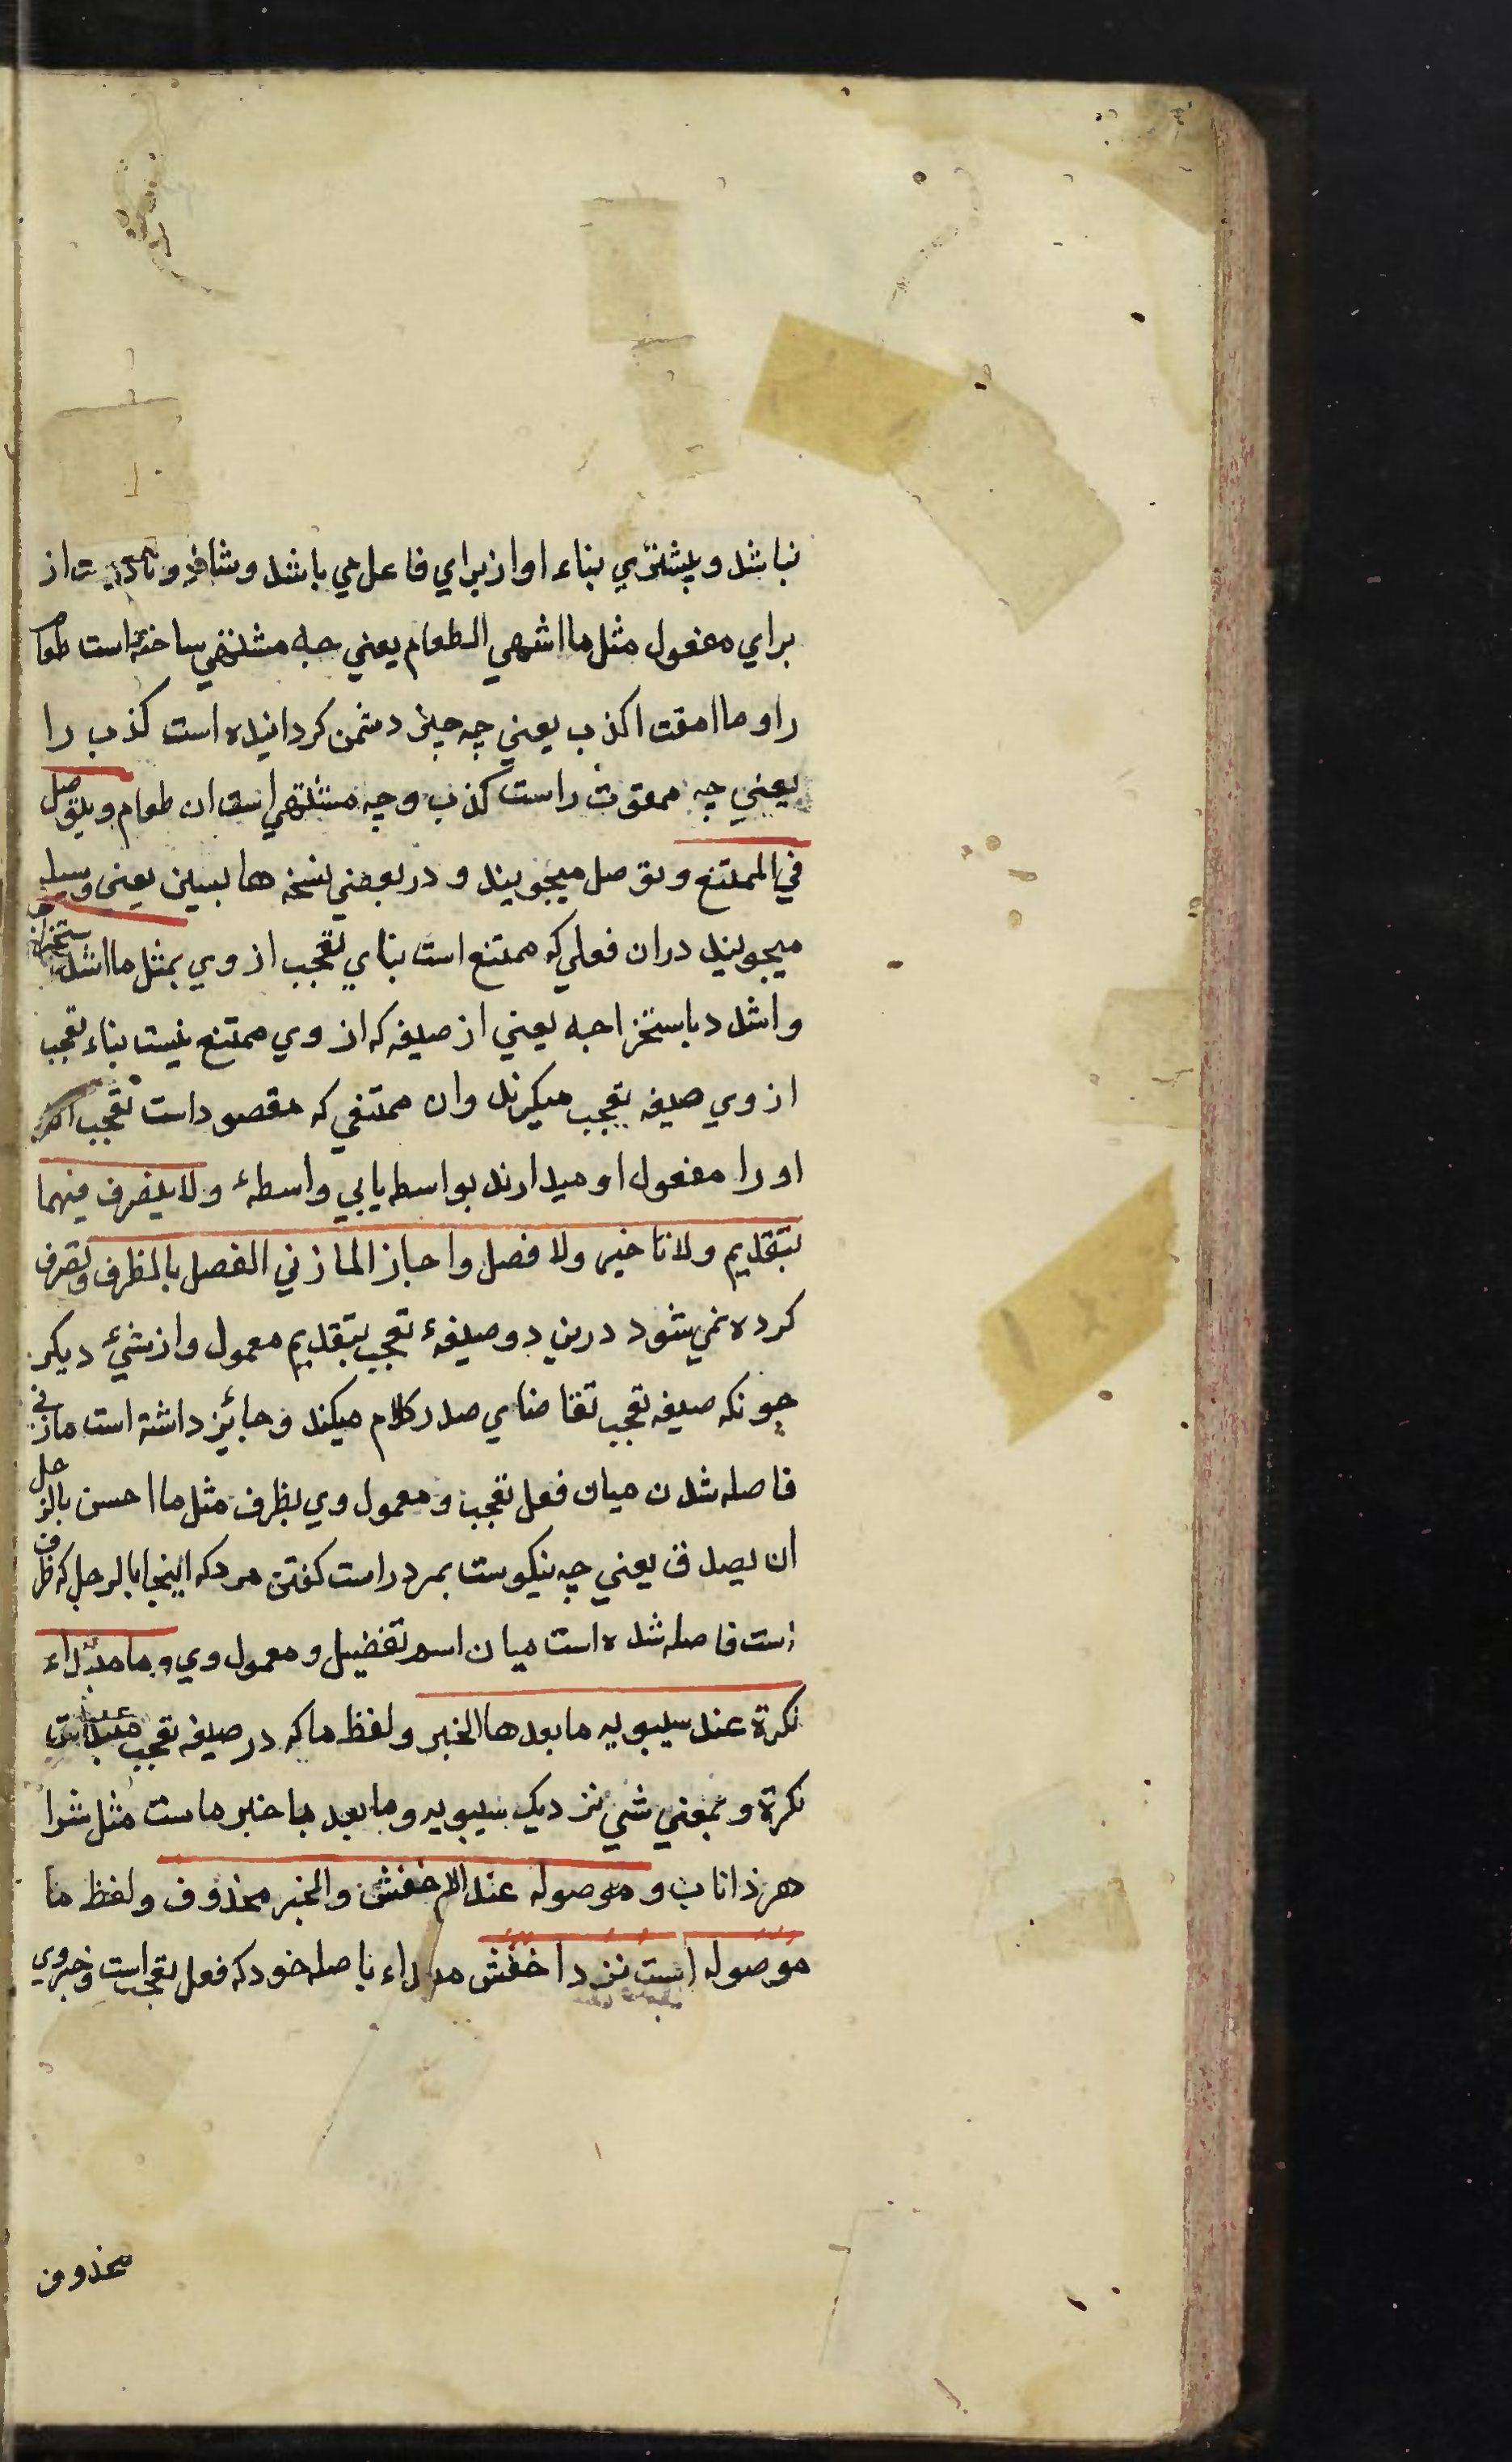 نباشد و بیشتري بناء او از براي فاعل مي باشد و شاذ و نادریست از
براي مفعول مثل ما اشهي الطعام يعني چه مشتهي ساخته است طعام
را و ما امقت اكذب يعني چه چيز دشمن كردانیده است كذب را
يعني چه ممقوت راست كذب و چه مشتهي است ان طعام ويتوصل
في الممتنع و توصل میجویند و در بعضي نسخه ها بسین يعني وسیله
میجویند دران فعلي كه ممتنع است بناي تعجب از وي بمثل ما اشد استخراجه
واشدد باستخراجه يعني از صیغه كه از وي ممتنع نیست بناء تعجب
از وي صیغه تعجب میكیرند وان ممتنعي كه مقصود است تعجب
او را مفعول او میدارند بواسطه یابي واسطهٔ ولا يتصرف فيهما
بتقديم ولا تاخير ولا فصل واجاز المازني الفصل بالظرف و تصرف
كرده نمي شود درین دو صیغهٔ تعجب بتقدیم معمول و از شئ دیكر
چونكه صیغه تعجب تقاضاي صدر كلام میكند و جائیز داشته است مازني
فاصله شدن میان فعل تعجب و معمول وي بظرف مثل ما احسن بالرجل
ان يصدق يعني چه نیكوست بمرد راست كفتن مردكه اینجا بالرجل كه ظرف
است فاصله شده است میان اسم تفضیل و معمول وي وما مبتداء
نكرة عند سيبويه ما بعدها الخبر و لفظ ما كه در صیغه تعجب مبتداست
نكرة و بمعني شي نزدیك سیبویه و ما بعد ما خبر ماست مثل شرا
هر ذاناب و موصوله عند الاخفش والخبر محذوف و لفظ ما
موصوله است نزد اخفش مبتداء با صله خود كه فعل تعجب است و خبر وي
محذوف